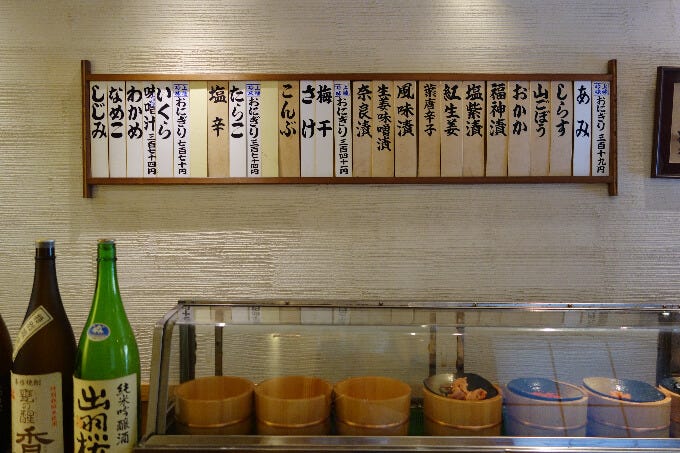 おにぎり 三百十九円
あみ
しらす
山ごぼう
おかか
福神漬
塩紫漬
紅生姜
葉唐辛子
風味漬
生姜味噌漬
奈良漬
おにぎり 三百四十円
梅干
さけ
こんぶ
おにぎり
たらこ
塩辛
おにぎり 七百七十円
いくら
味噌汁 三百七十四円
わかめ
なめこ
しじみ
純米吟醸酒
出羽桜